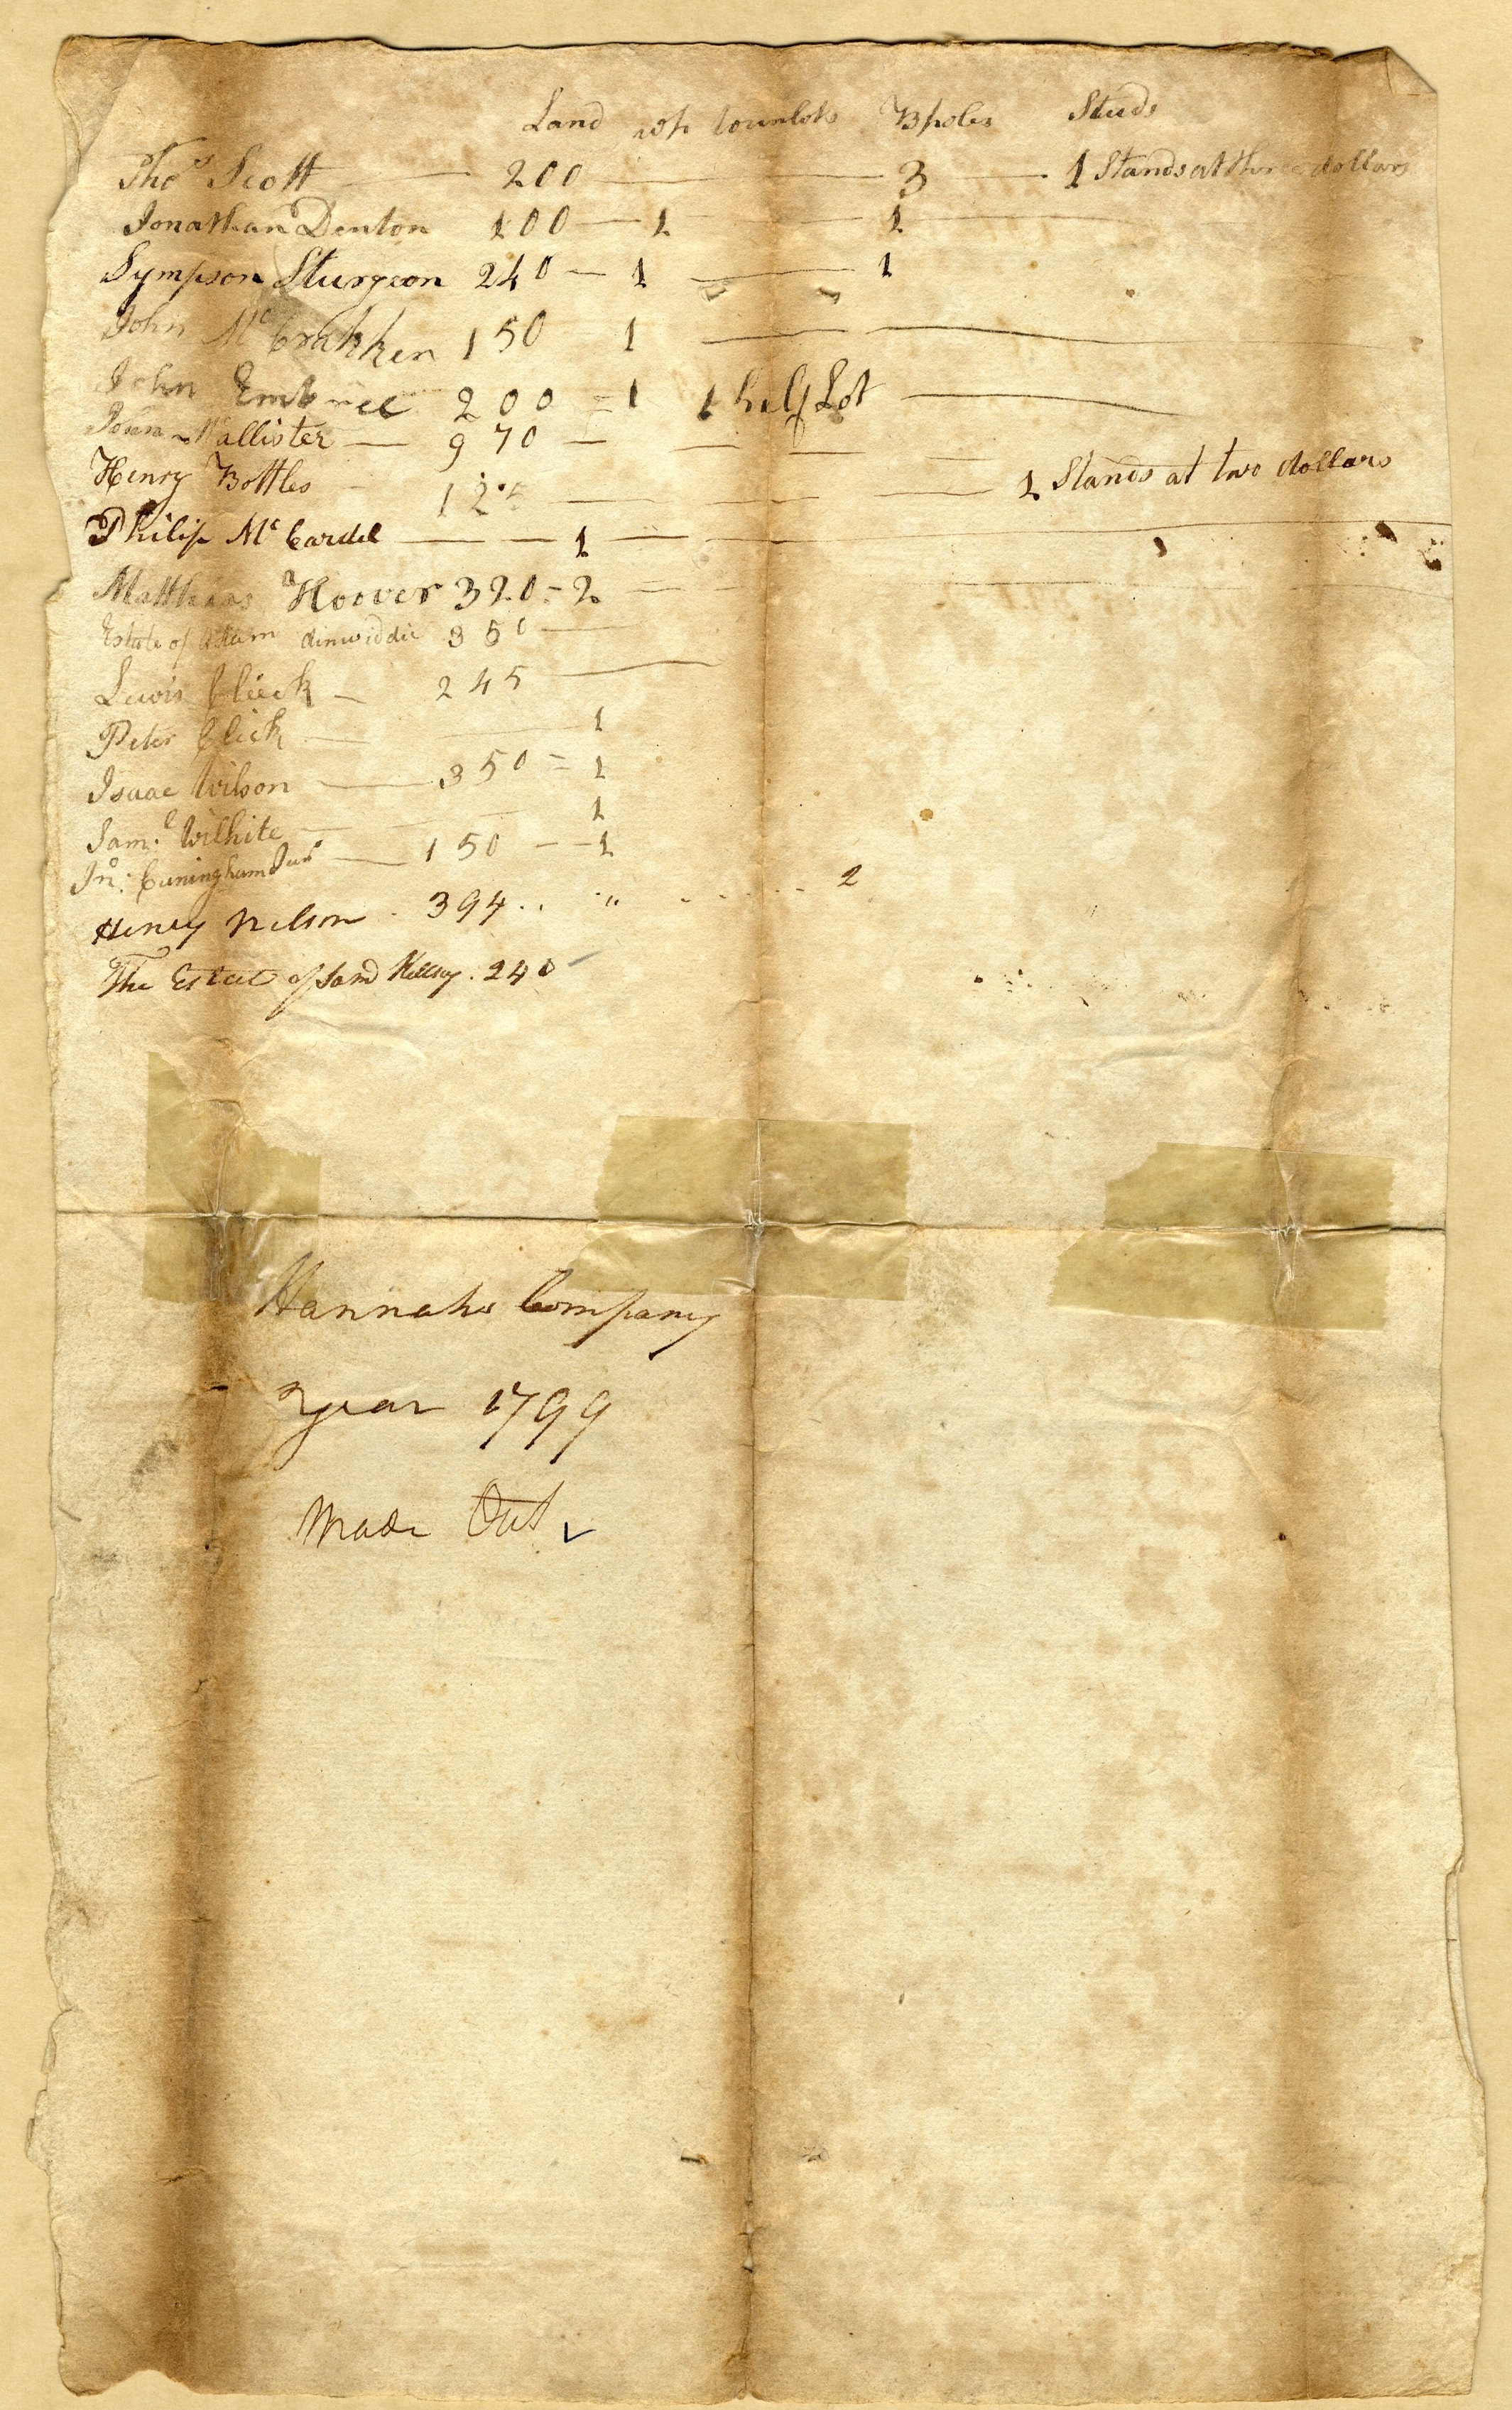 Land wp townlots Bpoles Studs
Thos Scott 200 3 1 Stands at three dollars
Jonathan Denton 100 1 1
Sympson Sturgeon 240 1 1
John Mc Crakken 150 1
John Embree 200 = 1 1 half Lot
John McAllister 970
Henry Bottles 12 1 Stands at two dollars
Philip Mc Cardel 1
Matthias Hoover 320 = 2
Estate of Adam dinwiddie 350
Lewis Click 245
Peter Click 1
Isaac Wilson 350 = 1
Saml Wilhite 1
Jno: Cuningham Junr 150 1
Henry Nelson . 394 . . " 2
The Estate of Samd Kelsey . 240
Hannahs Company
year 1799
Made Out